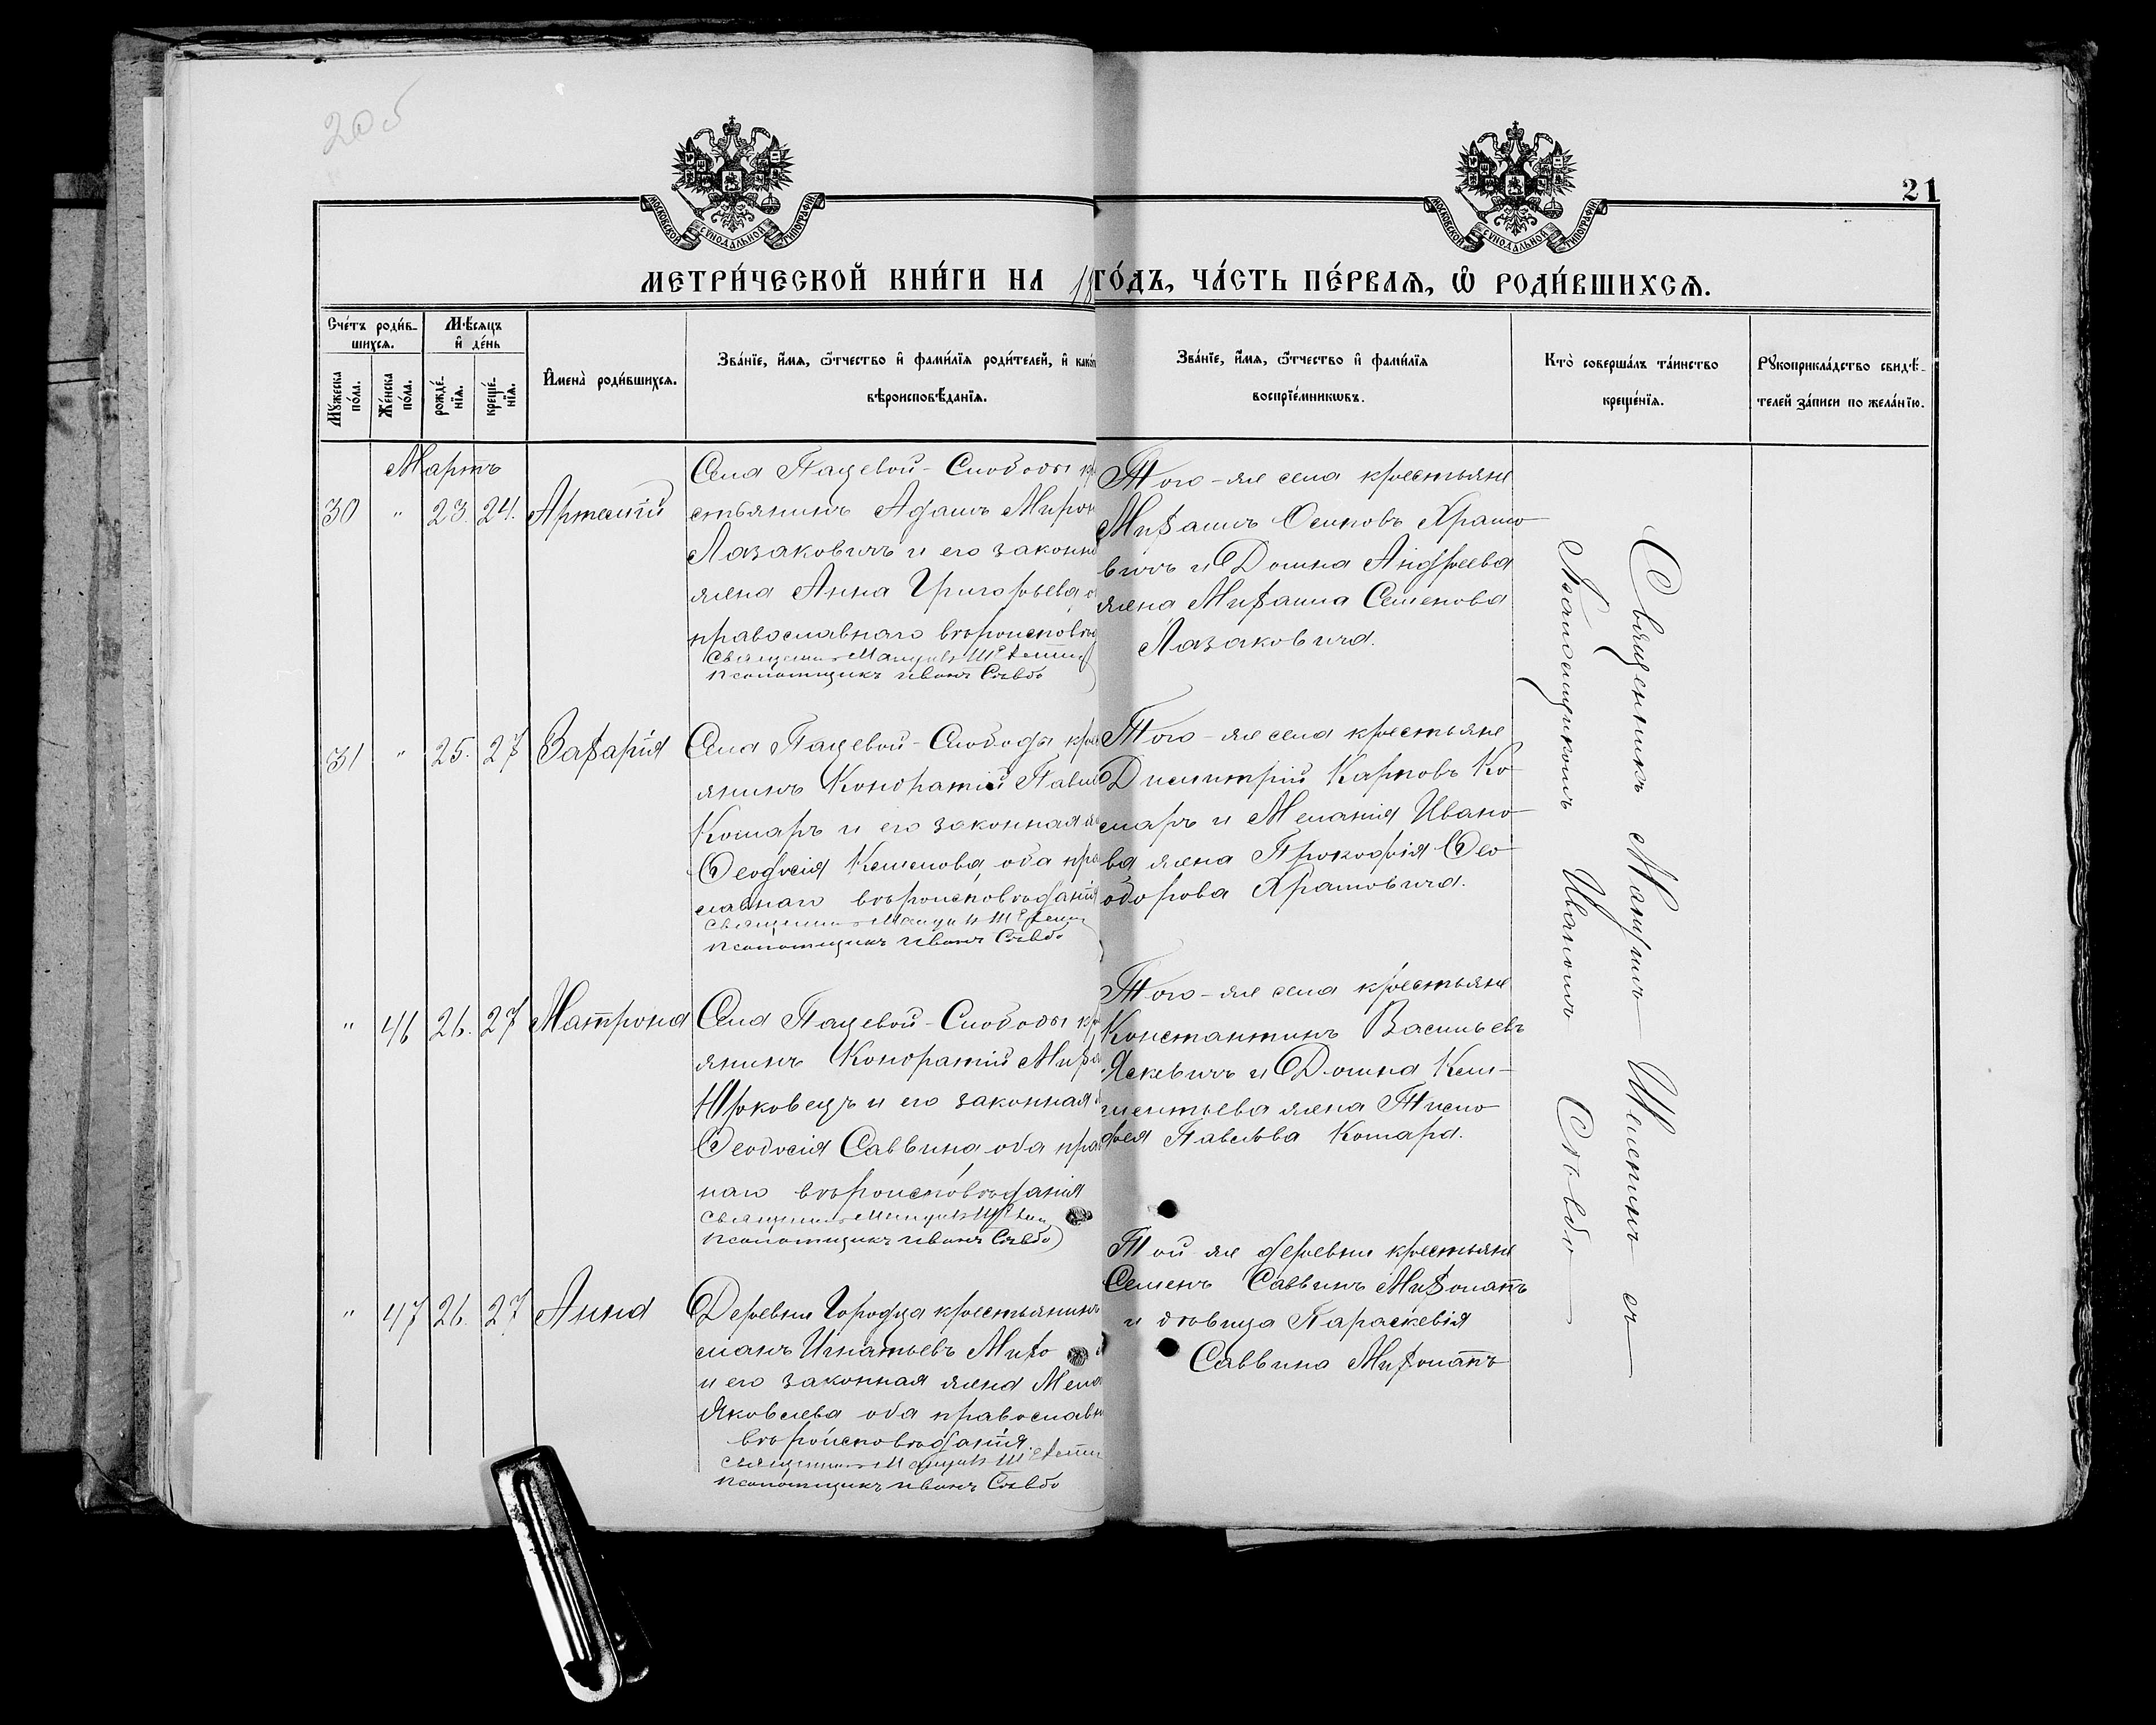 205
21
МОСКОВСКОЙ СѴНОДАЛЬНОЙ ТИПОГРАФІИ
МОСКОВСКОЙ СѴНОДАЛЬНОЙ ТИПОГРАФІИ
МЕТРИ́ЧЕСКОЙ КНИ́ГИ НА 18
ГО́ДЪ, ЧА́СТЬ ПЕ́РВАѦ, Ѡ҆ РОДИ́ВШИХСѦ.
Сче́тъ роди́в-
шихсѧ.
Мꙋ́жеска по́ла.
Же́нска по́ла.
Мѣ́сѧцъ и҆ де́нь
рожде́-
нїѧ.
креще́-
нїѧ.
И҆мена̀ роди́вшихсѧ.
Зва́нїе, и҆́мѧ, ѻ҆́тчество и҆ фами́лїѧ роди́телей, и҆ како́
вѣроисповѣ́данїѧ.
Зва́нїе, и҆́мѧ, ѻ҆́тчество и҆ фами́лїѧ
воспрїе́мникѡвъ.
Кто̀ соверша́лъ та́инство
креще́нїѧ.
Рꙋкоприкла́дство свидѣ́-
телей за́писи по жела́нїю.
Мартъ
30 " 23. 24. Артемій
Села Пацевой-Слободы кр
стьянинъ Адамъ Мирон
Лазаковичъ и его законн
жена Анна Григорьева, о
православнаго вѣроисповѣд
Священникъ
Псаломщикъ Иванъ Сѣвбо
Того-же села крестьяне
Михаилъ Осиповъ Храмо-
вичъ и Домна Андреева
жена Михаила Семенова
Лазаковича.
31 " 25. 27 Захарія
Села Пацевой-Слободы крес
янинъ Кондратій Павл
Комаръ и его законная же
Ѳеодосія Климова, оба пра
славнаго вѣроисповѣданія
Священникъ
Псаломщикъ Иванъ Сѣвбо
Того-же села крестьяне
Димитрій Карповъ Ко-
маръ и Меланія Ивано-
ва жена Прокофія Ѳео-
дорова Храмовича.
" 46 26. 27 Матрона
Села Пацевой-Слободы кр
янинъ Кондратій Миха
Юрковецъ и его законная
Ѳеодосія Саввина оба прав
наго вѣроисповѣданія
Священникъ
Псаломщикъ Иванъ Сѣвбо
Того-же села крестьяне
Константинъ Васильевъ
Яскевичъ и Домна Кли-
ментьева жена Тимо-
фея Павлова Комара.
" 47 26. 27 Анна
Деревни Городца крестьянинъ
манъ Игнатьевъ Михо
и его законная жена Мела
Яковлева оба православн
вѣроисповѣданія
Священникъ
Псаломщикъ Иванъ Сѣвбо
Той же деревни крестьяне
Семенъ Саввинъ Михопапъ
и дѣвица Параскевія
Саввина Михопапъ
Священникъ Мануилъ Шеметилъ съ
Псаломщикомъ Иваномъ Сѣвбо